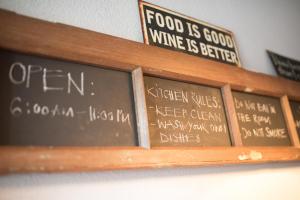 FOOD IS GOOD
WINE IS BETTER
OPEN:
6:00AM - 11:00PM
KITCHEN RULES:
- KEEP CLEAN
- WASH YOUR
DISHES
DO NOT EAT IN
THE ROOM
DO NOT SMOKE